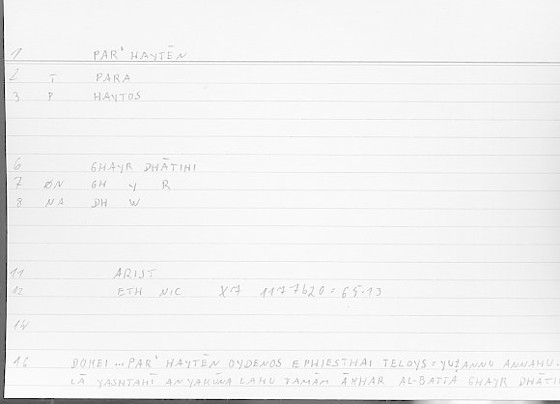 1 PAR' HAYTĒN
2 T PARA
3 P HAYTOS
6 GHAYR DHĀTIHI
7 ØN GH Y R
8 NA DH W
11 ARIST
02 ETH NIC X7 1177b20=65.13
14
16 DOKEI ... PAR' HAYTĒN OYDENOS EPHIESTHAI TELOYS = ANNAHU
LĀ YASHTAHĪ AN YAKŪNA LAHU TAMĀM ĀKHAR AL-BATTA GHAYR DHĀTI